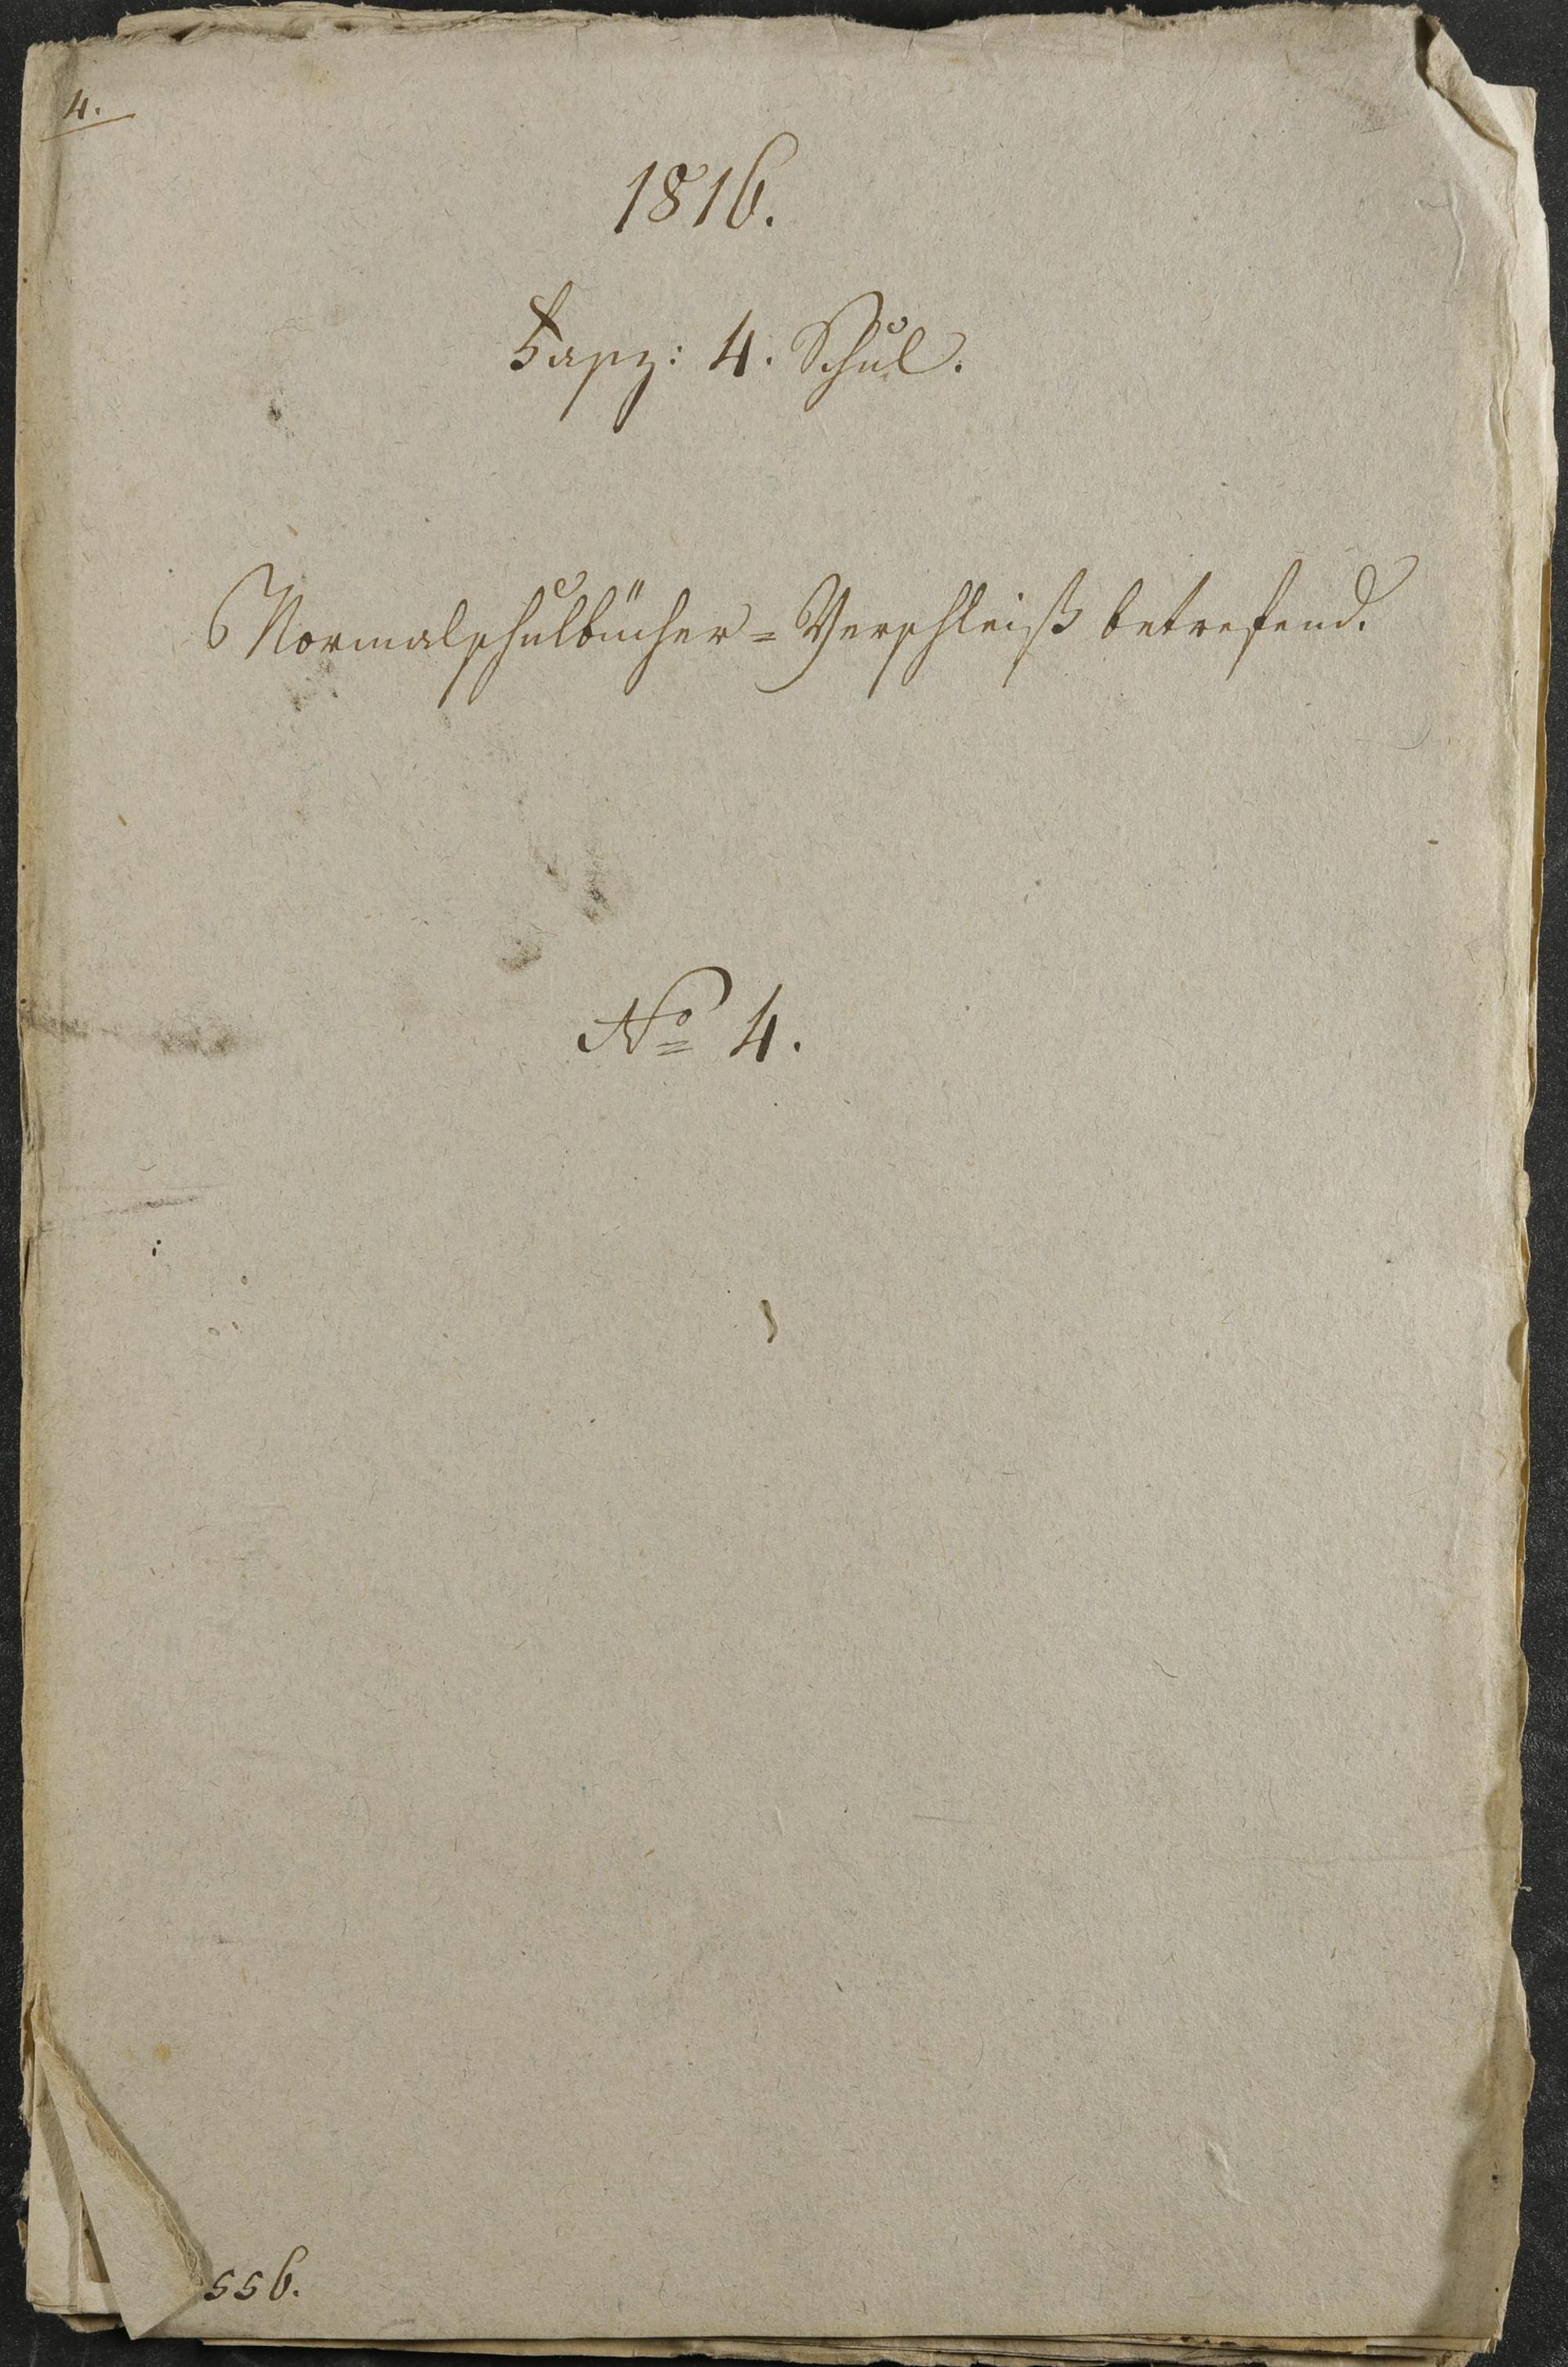 4.
1816.
Fasz: 4. Schul.
Normalschulbücher = Verschleiß betrefend.
No 4.
556.